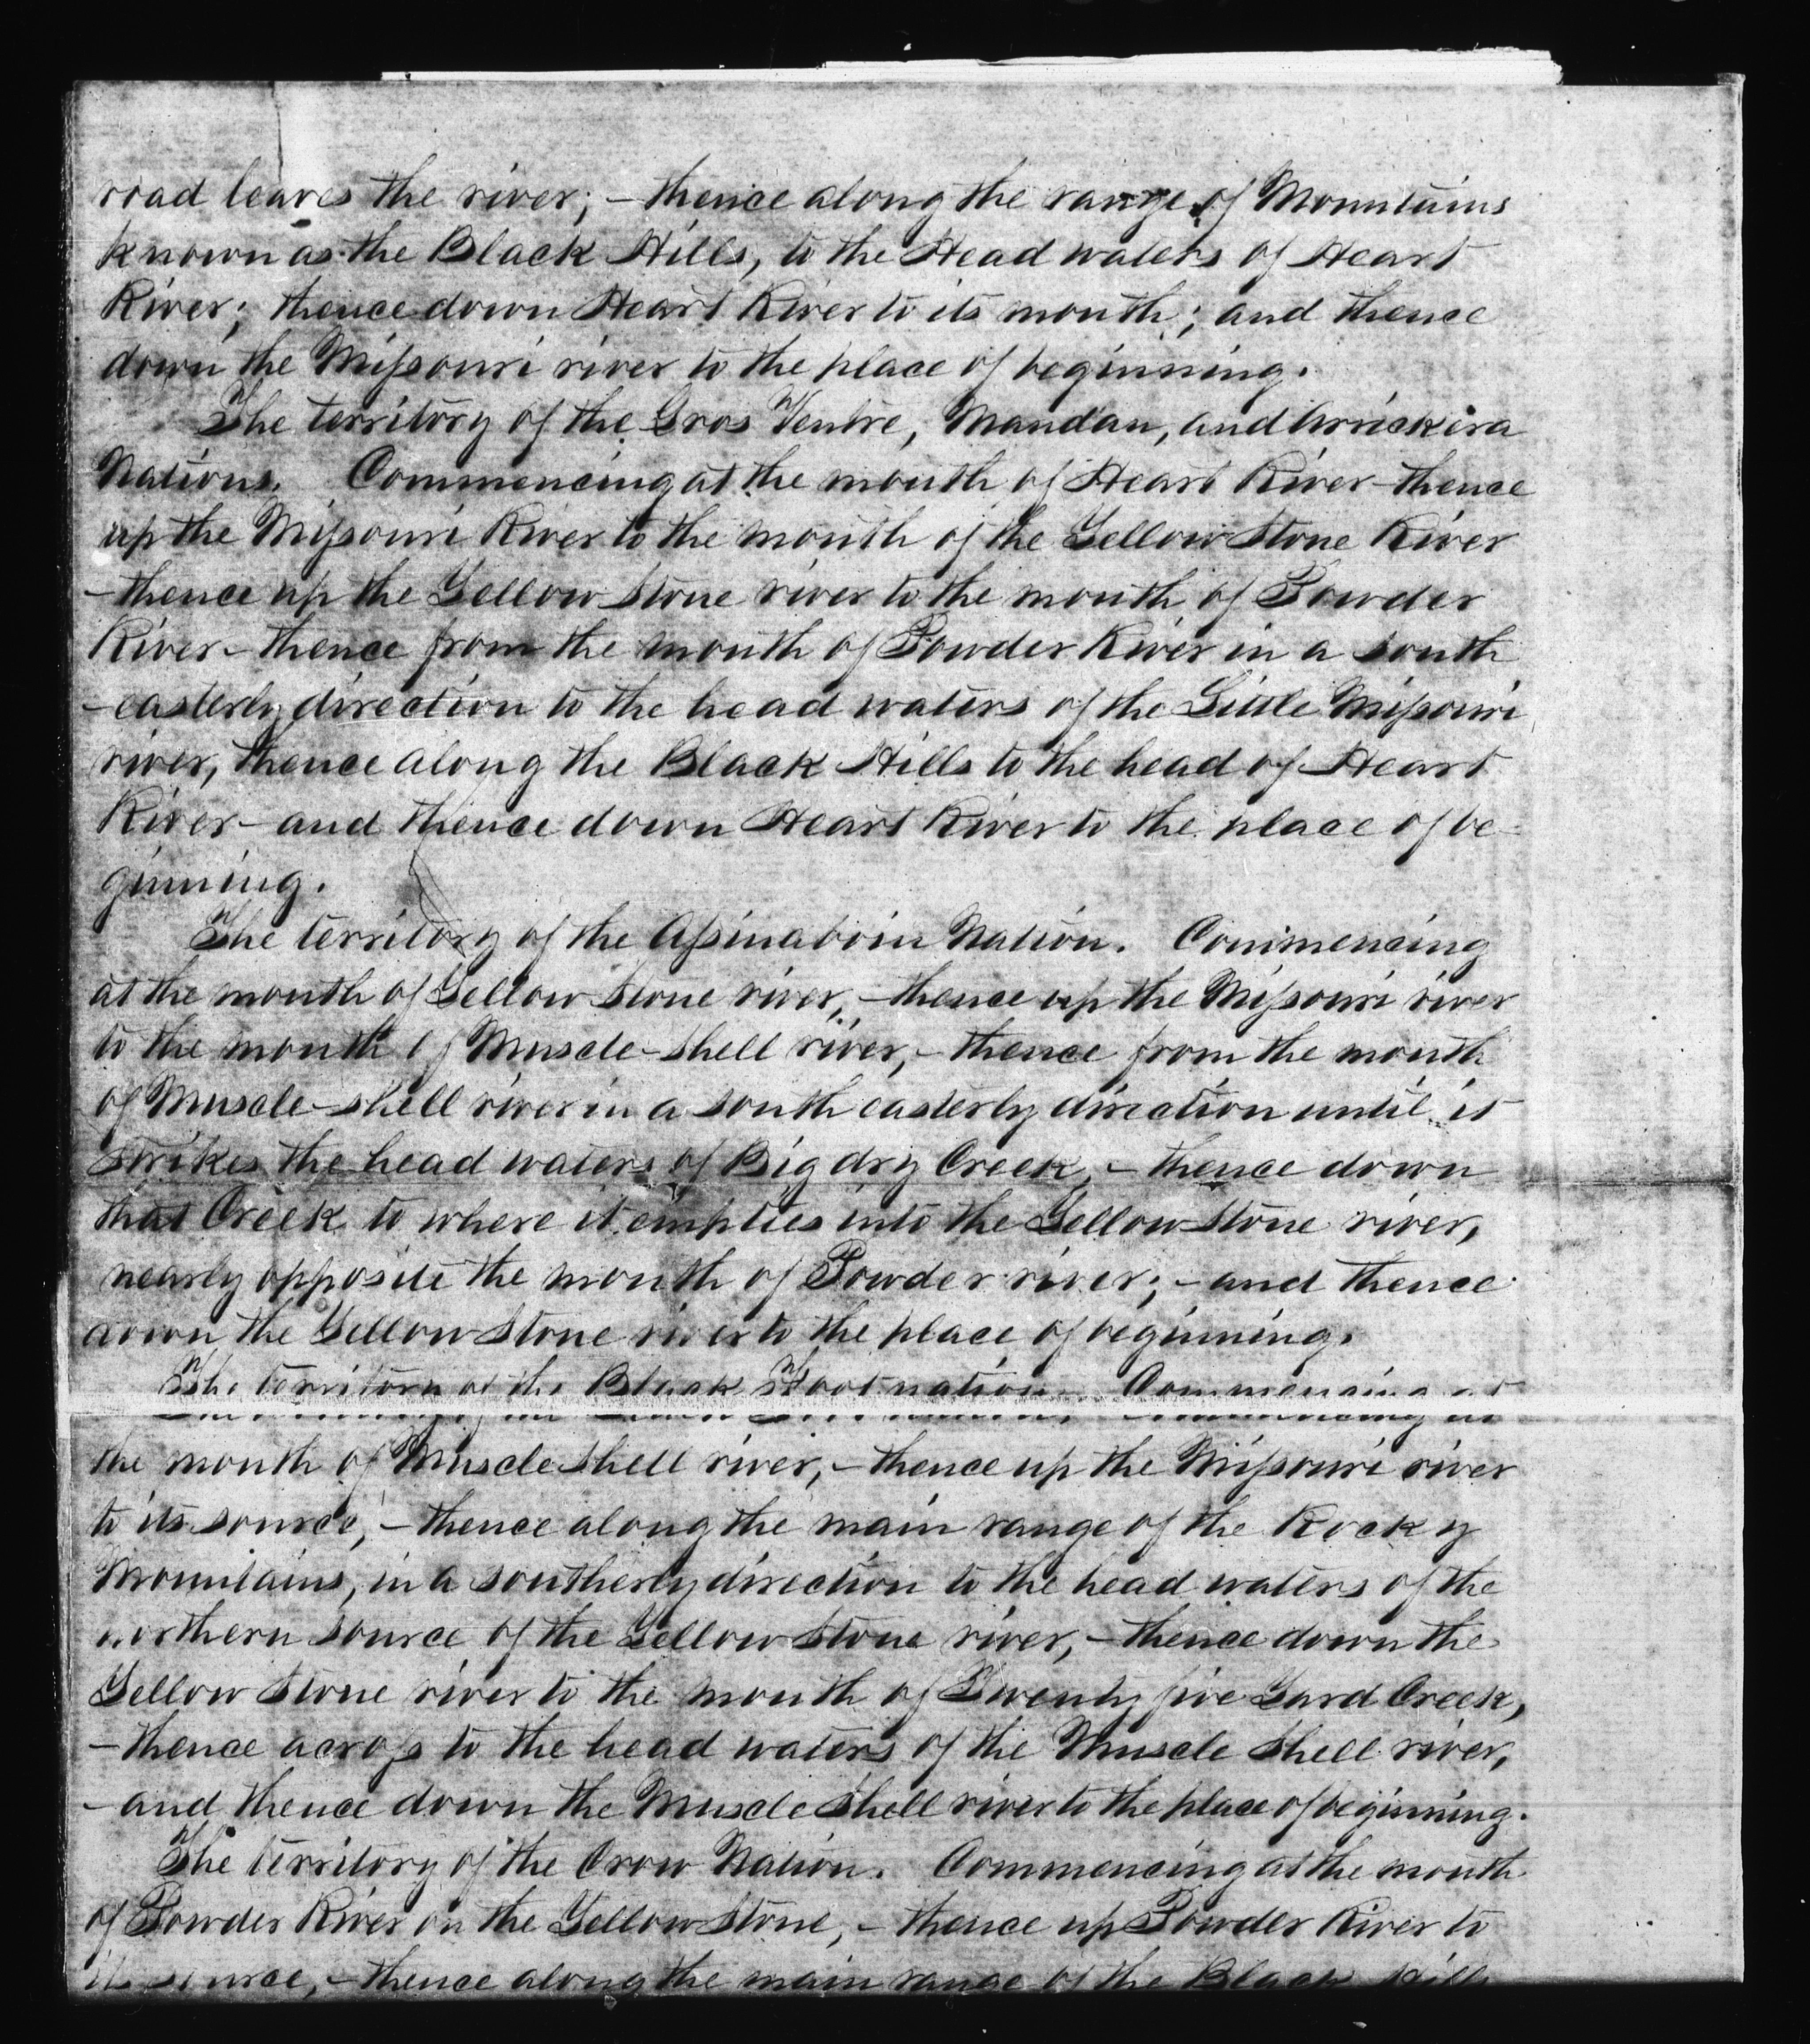 road leaves the river; – thence along the range of Mountains
known as the Black Hills, to the Head waters of Heart
River; thence down Heart River to its mouth; and thence
down the Missouri river to the place of beginning.
The territory of the Gros Ventre, Mandan, and Arrickera
Nations. Commencing at the mouth of Heart River – thence
up the Missouri River to the mouth of the Yellow Stone River
– thence up the Yellow Stone river to the mouth of Powder
River – thence from the mouth of Powder River in a south
– easterly direction to the head waters of the Little Missouri
river, thence along the Black Hills to the head of Heart
River – and thence down Heart River to the place of be-
ginning.
The territory of the Assinaboin Nation. Commencing
at the mouth of Yellow Stone river, – thence up the Missouri river
to the mouth of Muscle-shell river, – thence from the mouth
of Muscle-shell river in a south easterly direction until it
strikes the head waters of Big dry Creek, – thence down
that Creek to where it empties into the Yellow Stone river,
nearly opposite the mouth of Powder river; – and thence
down the Yellow Stone river to the place of beginning.
The territory of the Black Foot nation. Commencing at
the mouth of Muscle shell river, – thence up the Missouri river
to its source, – thence along the main range of the Rocky
Mountains, in a southerly direction to the head waters of the
northern source of the Yellow Stone river, – thence down the
Yellow Stone river to the mouth of Twenty five Yard Creek,
– thence across to the head waters of the Muscle Shell river,
– and thence down the Muscle Shell river to the place of beginning.
The territory of the Crow Nation. Commencing at the mouth
of Powder River on the Yellow Stone, – thence up Powder River to
its source, – thence along the main range of the Black Hills